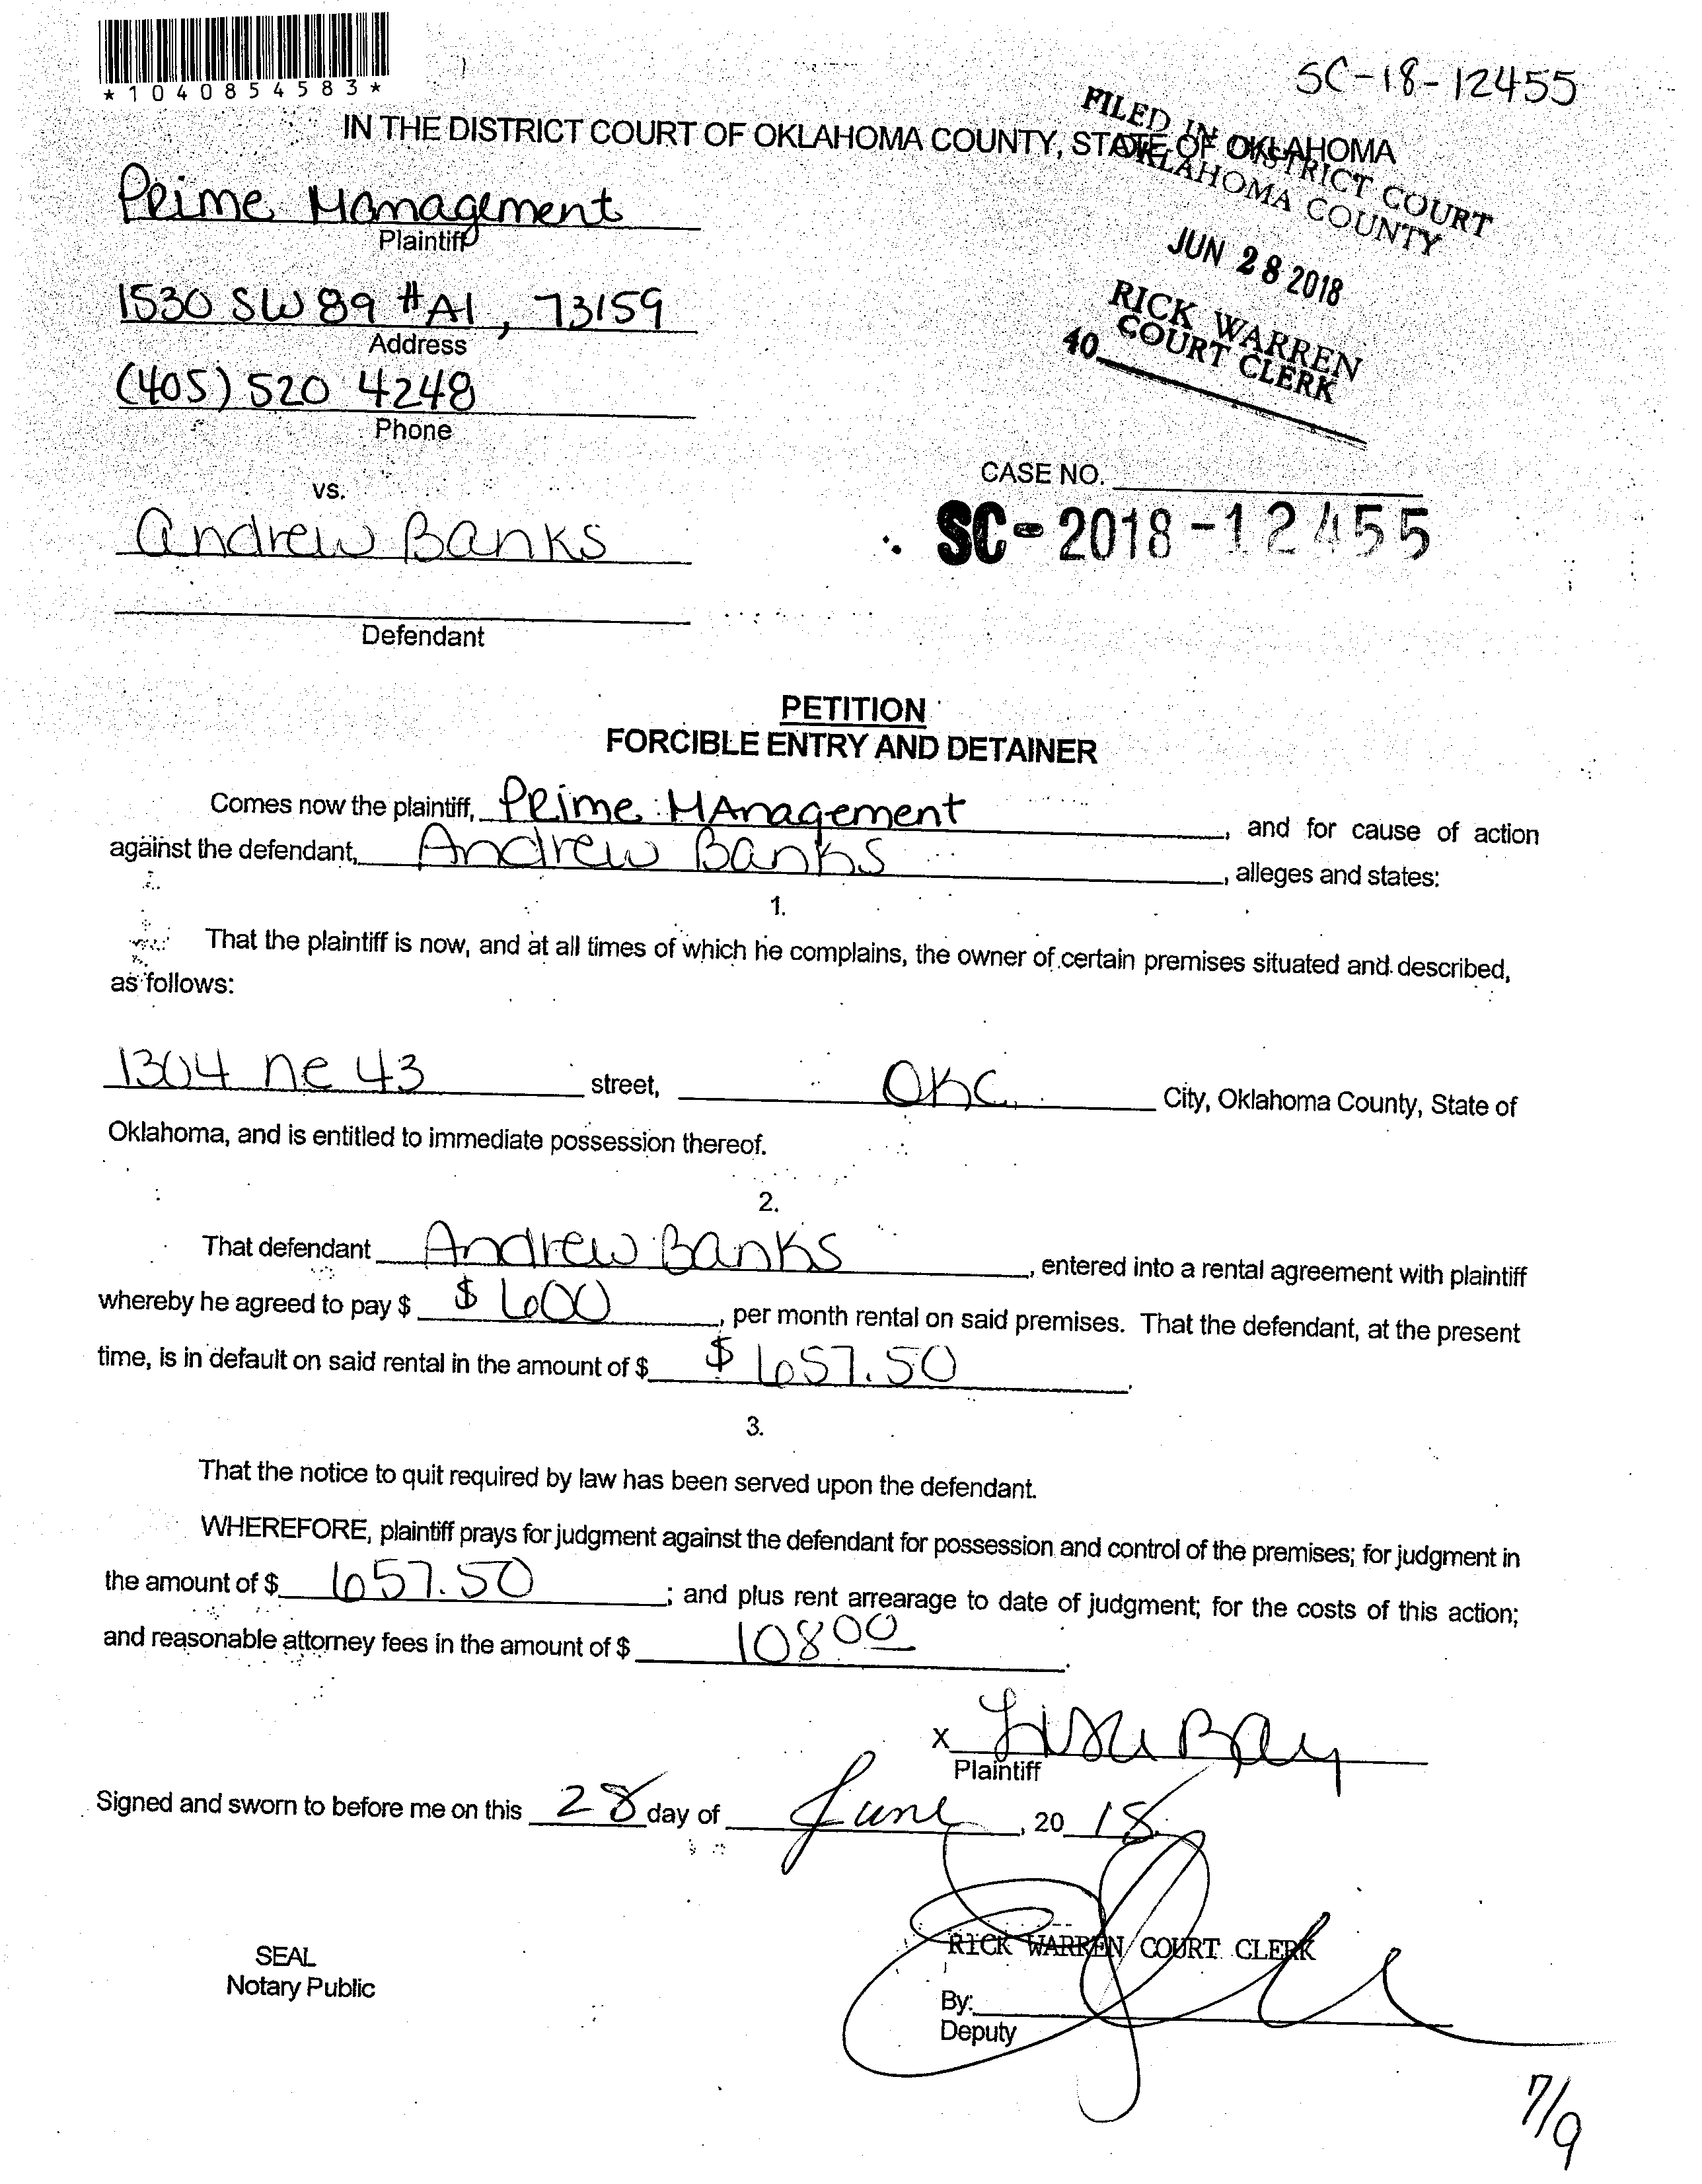 *1040854583*
SC-18-12455
IN THE DISTRICT COURT OF OKLAHOMA COUNTY, STATE OF OKLAHOMA
FILED IN DISTRICT COURT
OKLAHOMA COUNTY
JUN 28 2018
RICK WARREN
COURT CLERK
40
Prime Management
Plaintiff
1530 SW 89 #A1, 73159
Address
(405) 520 4248
Phone
vs.
CASE NO.
SC-2018-12455
Andrew Banks
Defendant
PETITION
FORCIBLE ENTRY AND DETAINER
Comes now the plaintiff, Prime MAnagement, and for cause of action
against the defendant, Andrew Banks, alleges and states:
1.
That the plaintiff is now, and at all times of which he complains, the owner of certain premises situated and described,
as follows:
1304 ne 43 street, OKC City, Oklahoma County, State of
Oklahoma, and is entitled to immediate possession thereof.
2.
That defendant Andrew Banks, entered into a rental agreement with plaintiff
whereby he agreed to pay $ $600, per month rental on said premises. That the defendant, at the present
time, is in default on said rental in the amount of $ $657.50.
3.
That the notice to quit required by law has been served upon the defendant.
WHEREFORE, plaintiff prays for judgment against the defendant for possession and control of the premises; for judgment in
the amount of $ 657.50; and plus rent arrearage to date of judgment; for the costs of this action;
and reasonable attorney fees in the amount of $ 108 00.
X Lisa Bay
Plaintiff
Signed and sworn to before me on this 28 day of June, 20 18.
RICK WARREN COURT CLERK
SEAL
Notary Public
By:
Deputy
7/9